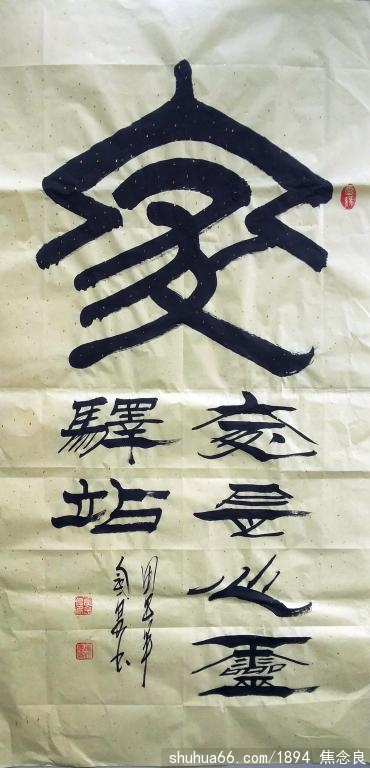 家
家是心靈
驛站
shuhua66.com/1894 焦念良